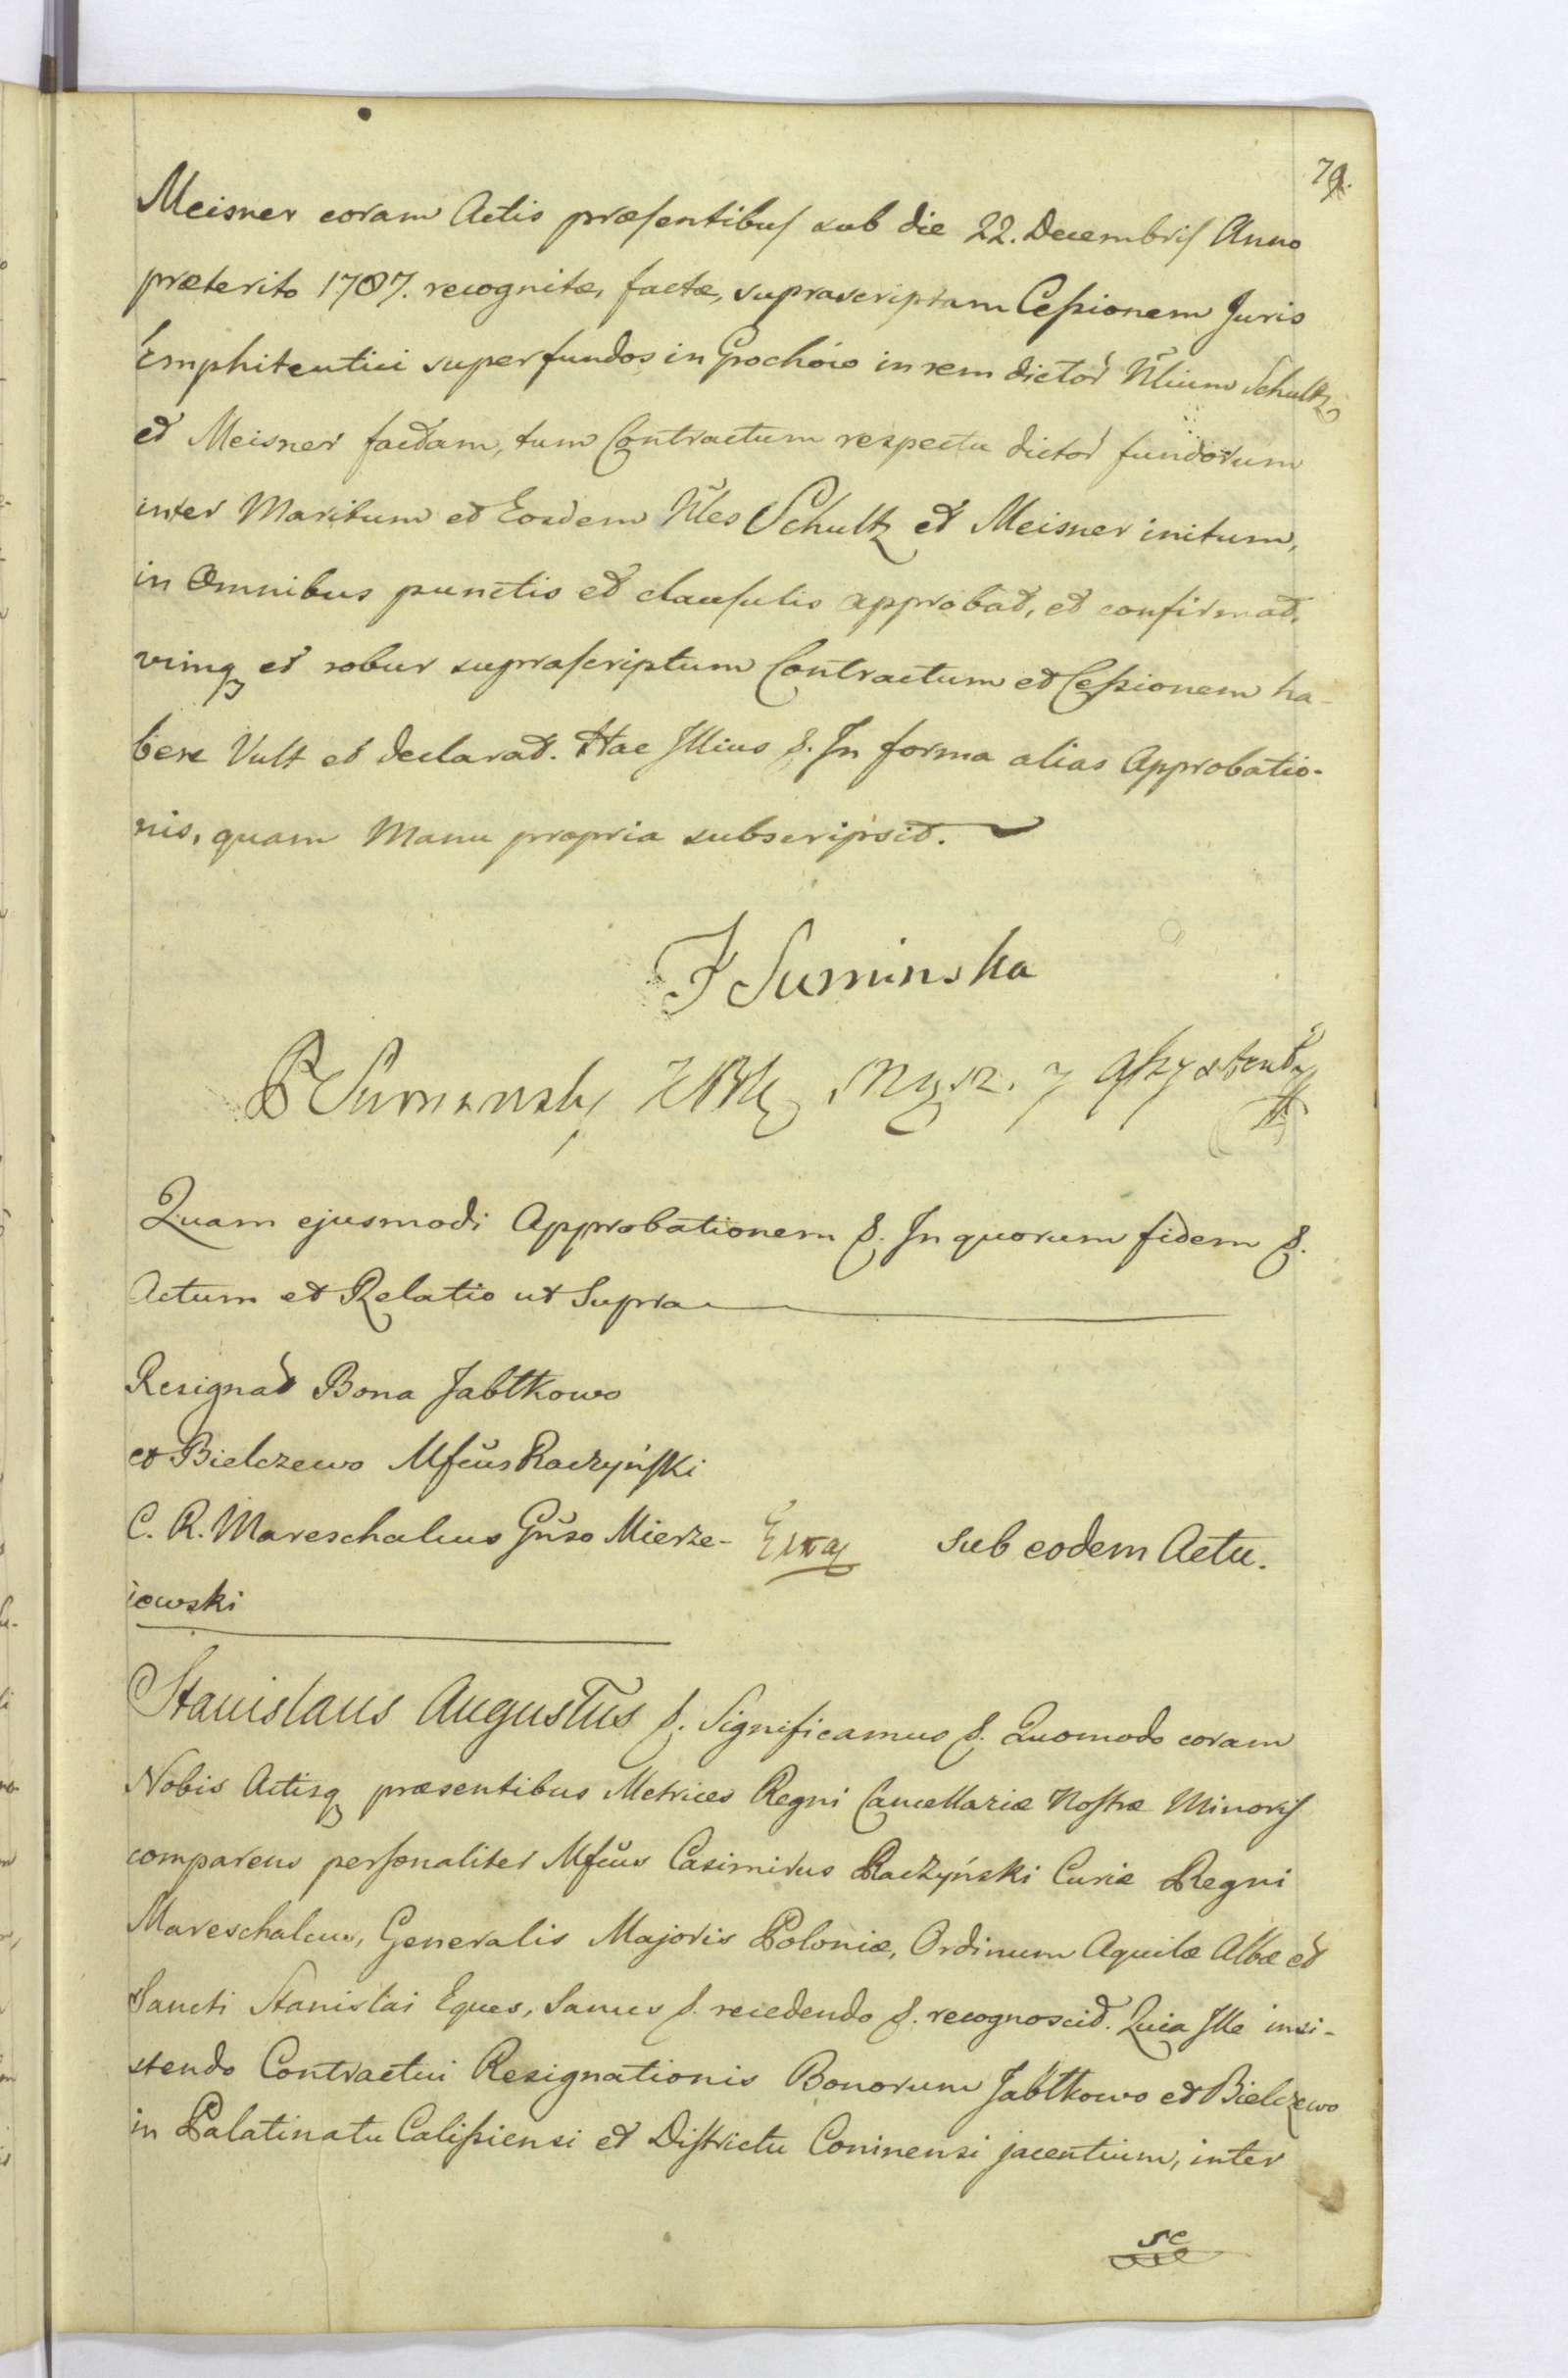 79.
Meisner coram Actis præsentibus sub die 22. Decembris Anno
præterito 1787. recognitæ, factæ, suprascriptam Cessionem Juris
Emphiteutici super fundos in Grochów in rem dictor Nlium Schultz
et Meisner factam, tum Contractum respectu dictor fundorum
inter Maritum et Eosdem Nles Schultz et Meisner initum,
in Omnibus punctis et clausulis approbat, et confirmat,
vimq et robur suprascriptum Contractum et Cessionem ha-
bere Vult et declarat. Hac Illius &. In forma alias Approbatio-
nis, quam Manu propria subscripsit.
F Suminska
P Suminsky
Quam ejusmodi Approbationem &. In quorum fidem &.
Actum et Relatio ut Supra
Resignat Bona Jabłkowo
et Bielczewo Mfcus Raczyński
C. R. Mareschalcus Gnso Mierze-
jewski
sub eodem Actu.
Stanislaus Augustus &. Significamus &. Quomodo coram
Nobis Actisq præsentibus Metrices Regni Cancellariæ Nostræ Minoris
comparens personaliter Mfcus Casimirus Raczyński Curiæ Regni
Mareschalcus, Generalis Majoris Poloniæ, Ordinum Aquilæ Albæ et
Sancti Stanislai Eques, Sanus &. recedendo &. recognoscit. Quia Ille insi-
stendo Contractui Resignationis Bonorum Jabłkowo et Bielczewo
in Palatinatu Calisiensi et Districtu Coninensi jacentium, inter
se